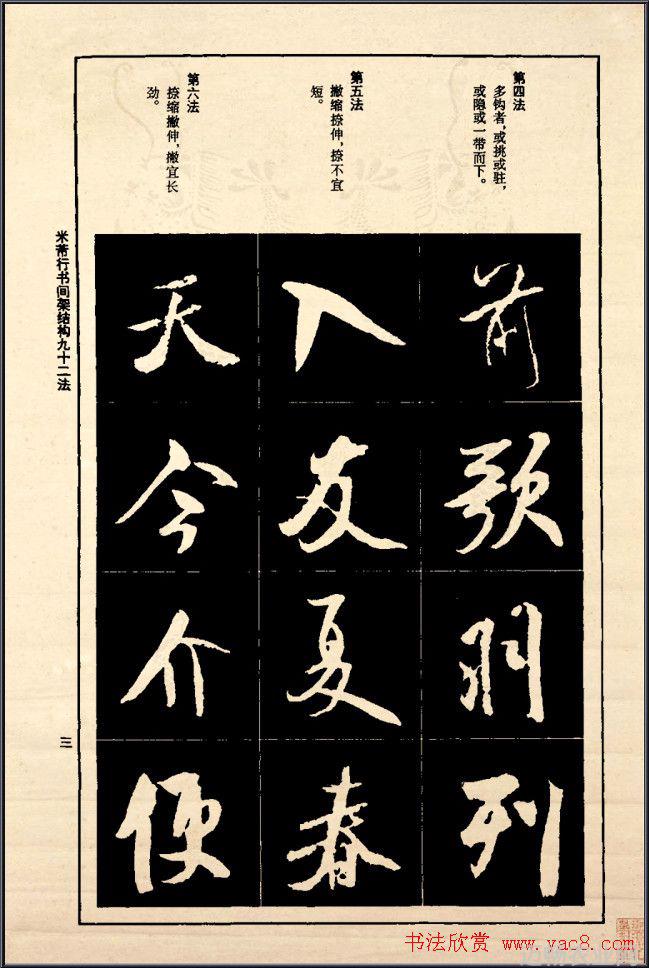 第四法
多钩者，或挑或驻，
或隐或一带而下。
第五法
撇缩捺伸，捺不宜
短。
第六法
捺缩撇伸，撇宜长
劲。
前
歌
羽
列
入
友
夏
春
天
今
介
便
米芾行书间架结构九十二法
三
书法欣赏 www.yac8.com